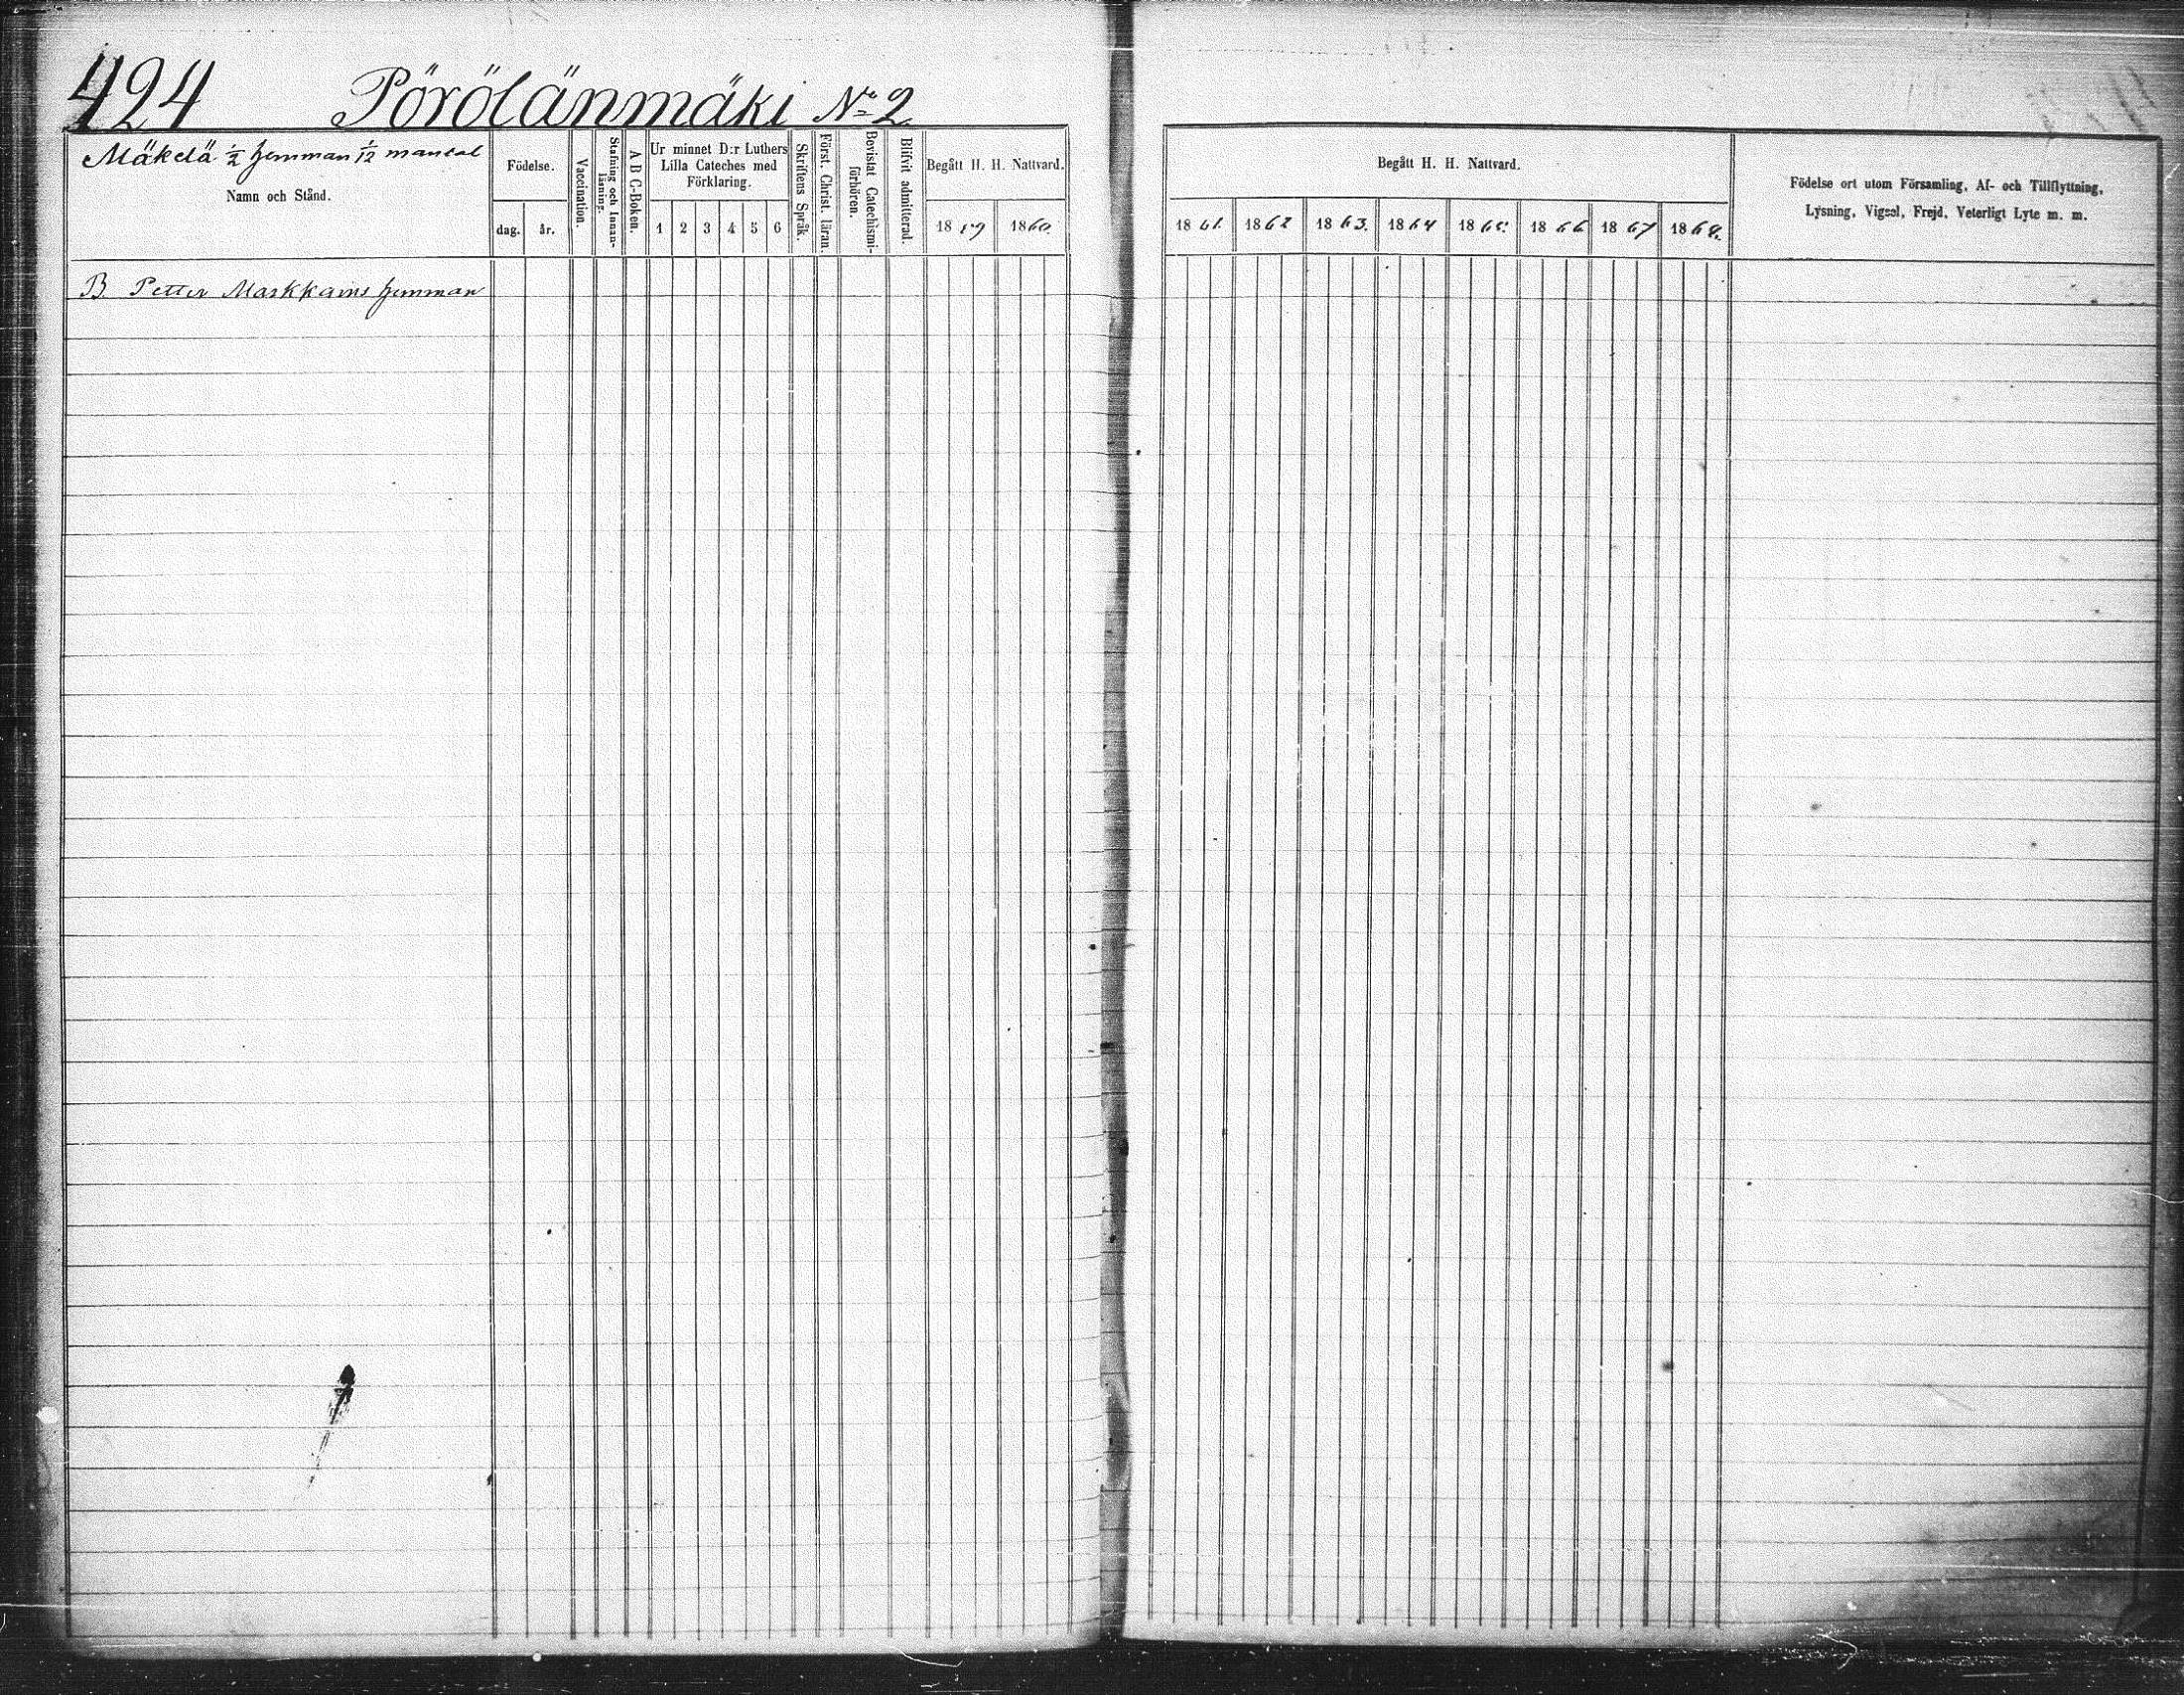 424 Pörölänmäki No 2
Mäkelä 1/2 hemman 1/12 mantal
Namn och Stånd.
Födelse.
dag. år.
Vaccination.
Stafning och Innan-
läsning.
A B C-Boken.
Ur minnet D:r Luthers
Lilla Cateches med
Förklaring.
1 2 3 4 5 6
Skriftens Språk.
Först. Christ. läran.
Bevistat Catechismi-
förhören.
Blifvit admitterad.
Begått H. H. Nattvard.
1859 1860.
Begått H. H. Nattvard.
1861. 1862 1863. 1864 1865. 1866 1867 1868.
Födelse ort utom Församling, Af- och Tillflyttning,
Lysning, Vigsel, Frejd, Veterligt Lyte m. m.
B. Petter Markkains hemman